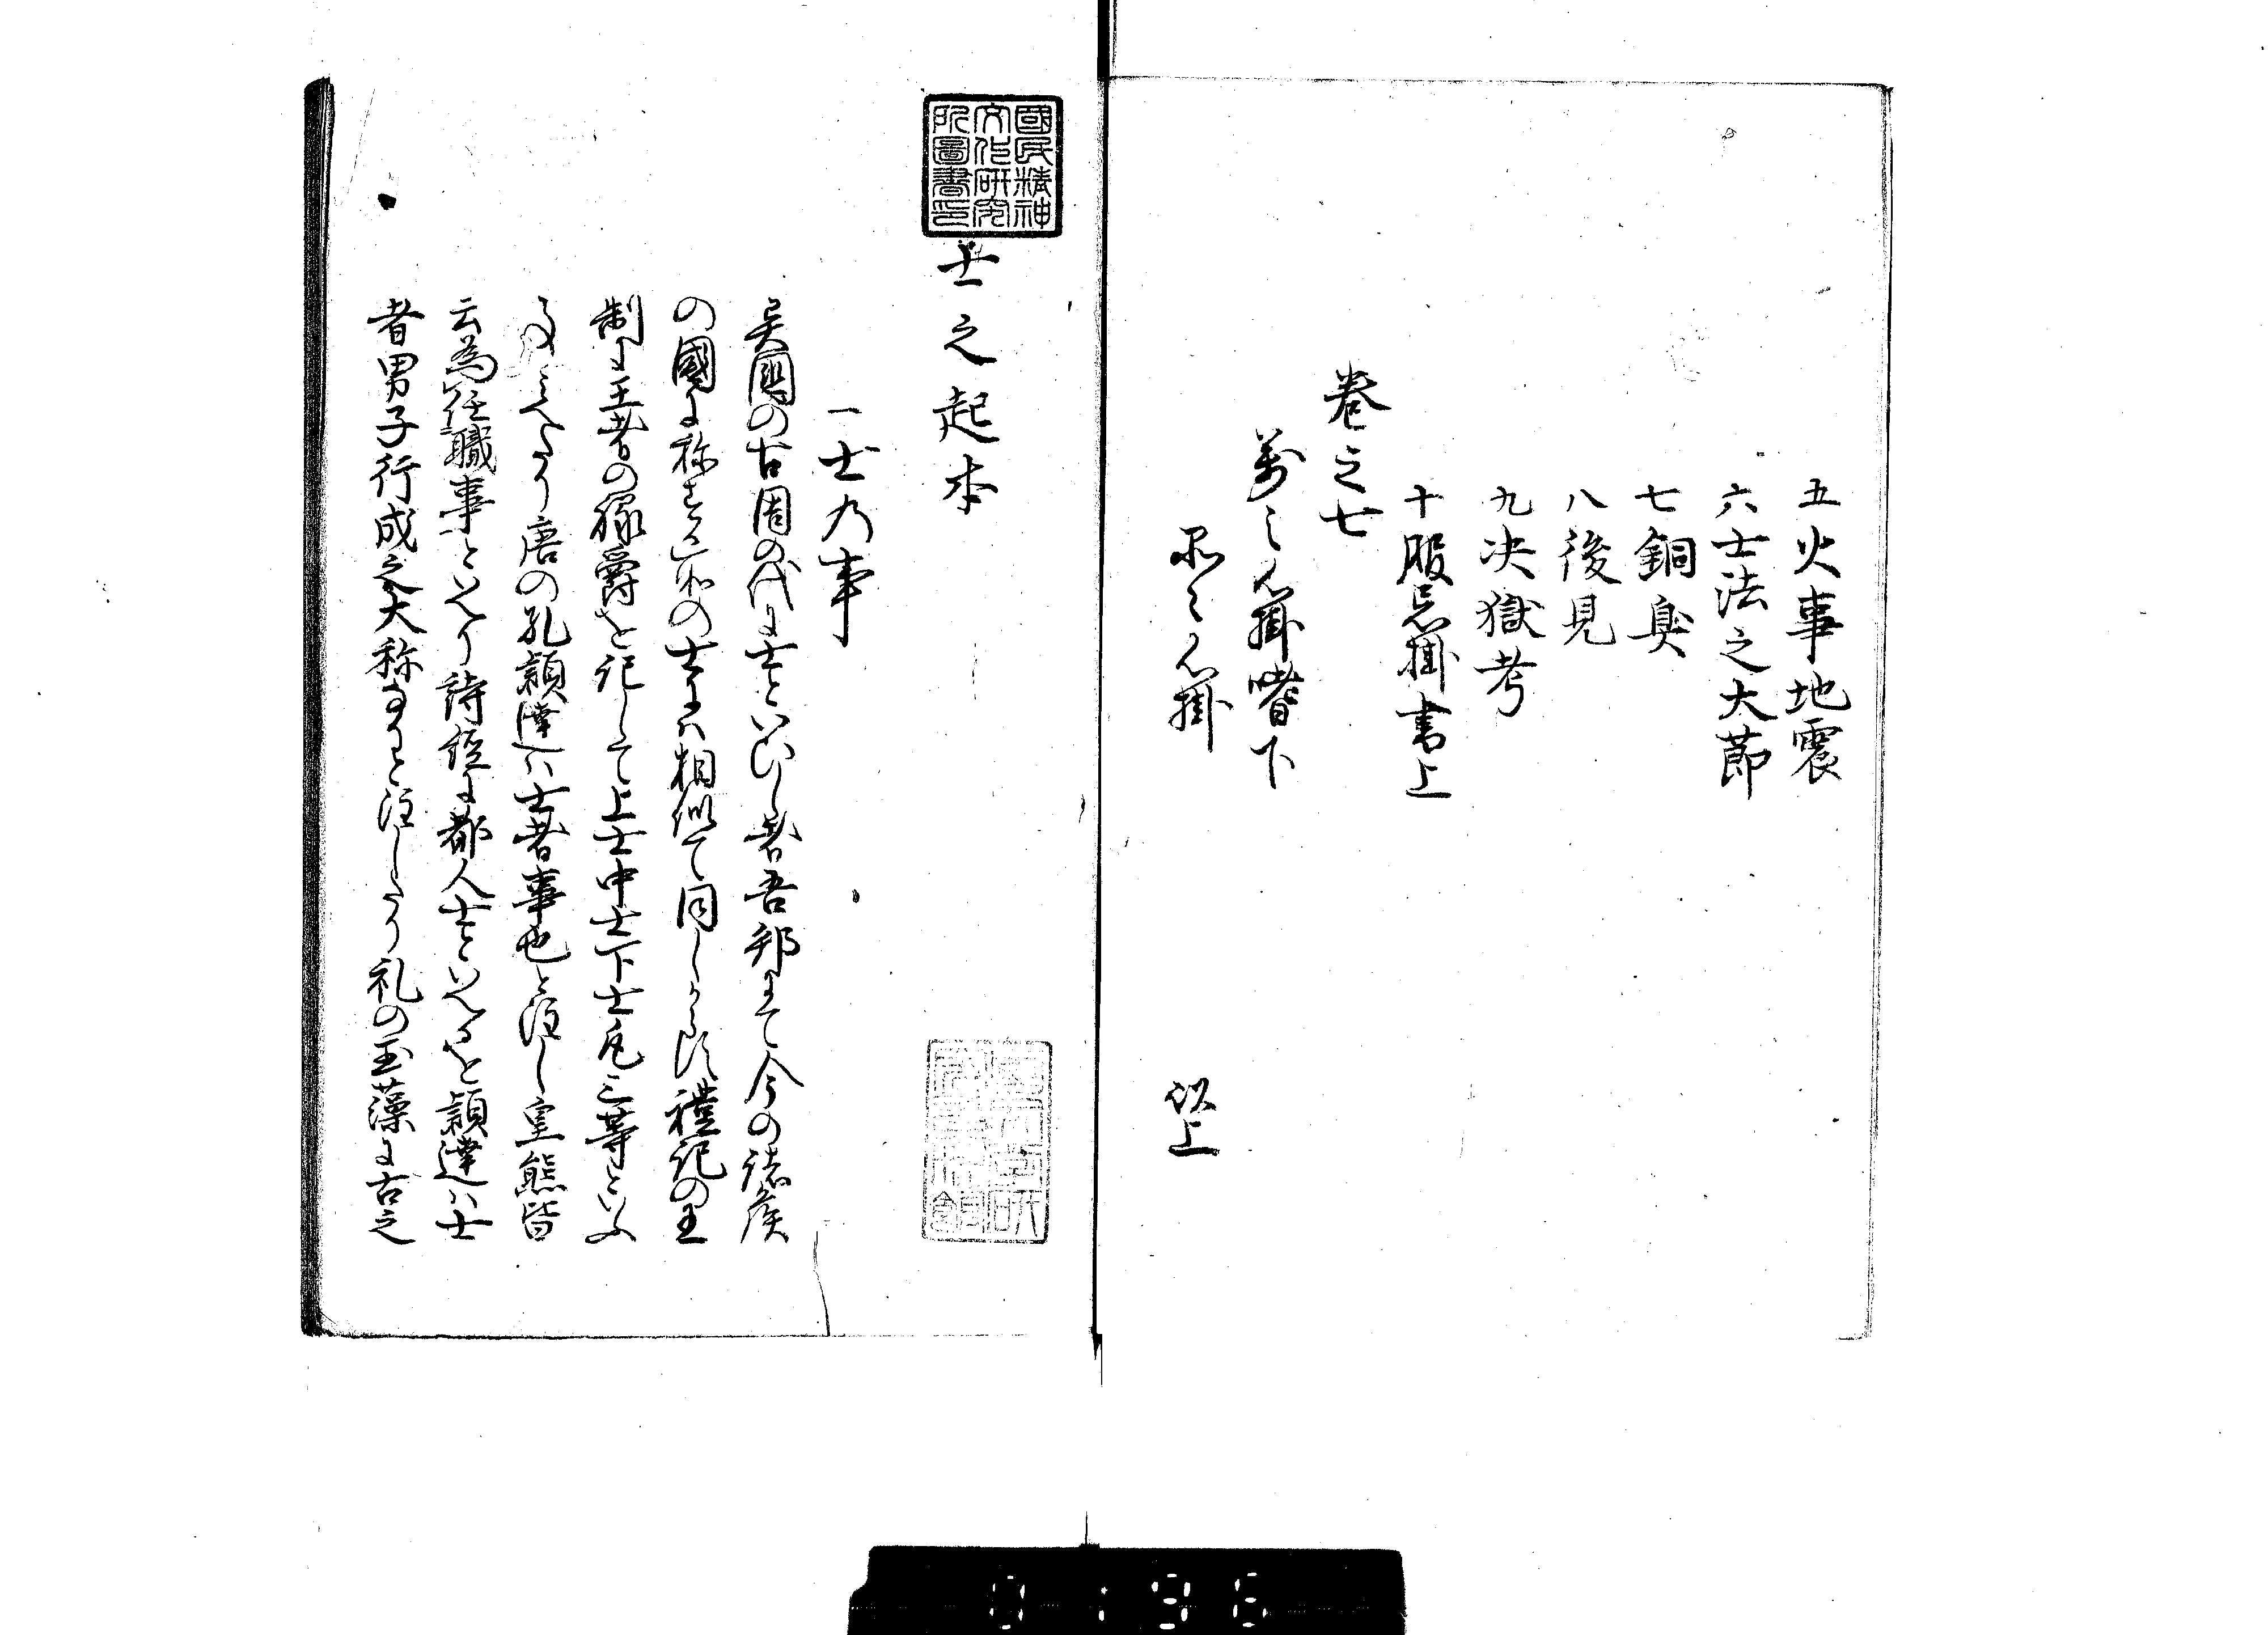 五火事地震
六士法之大節
七銅臭
八後見
九决獄考
十服忌掛書上
巻之七
萬之心掛嗜下
不之心掛
以上
國民精神
文化研究
所圖書印
士之起本
一士乃事
異國の古周の代に士といひし者吾邦にて今の諸侯
の國に称する所の士には相似て同しからす禮記の王
制に王者の禄爵を記して上士中士下士凡三等といふ
事みへたり唐の孔頴達ハ士者事也と注し皇熊皆
云為任職事といへり詩経に都人士といへるを頴達ハ士
者男子行成之大称なりと注したり礼の玉藻に古之
0196